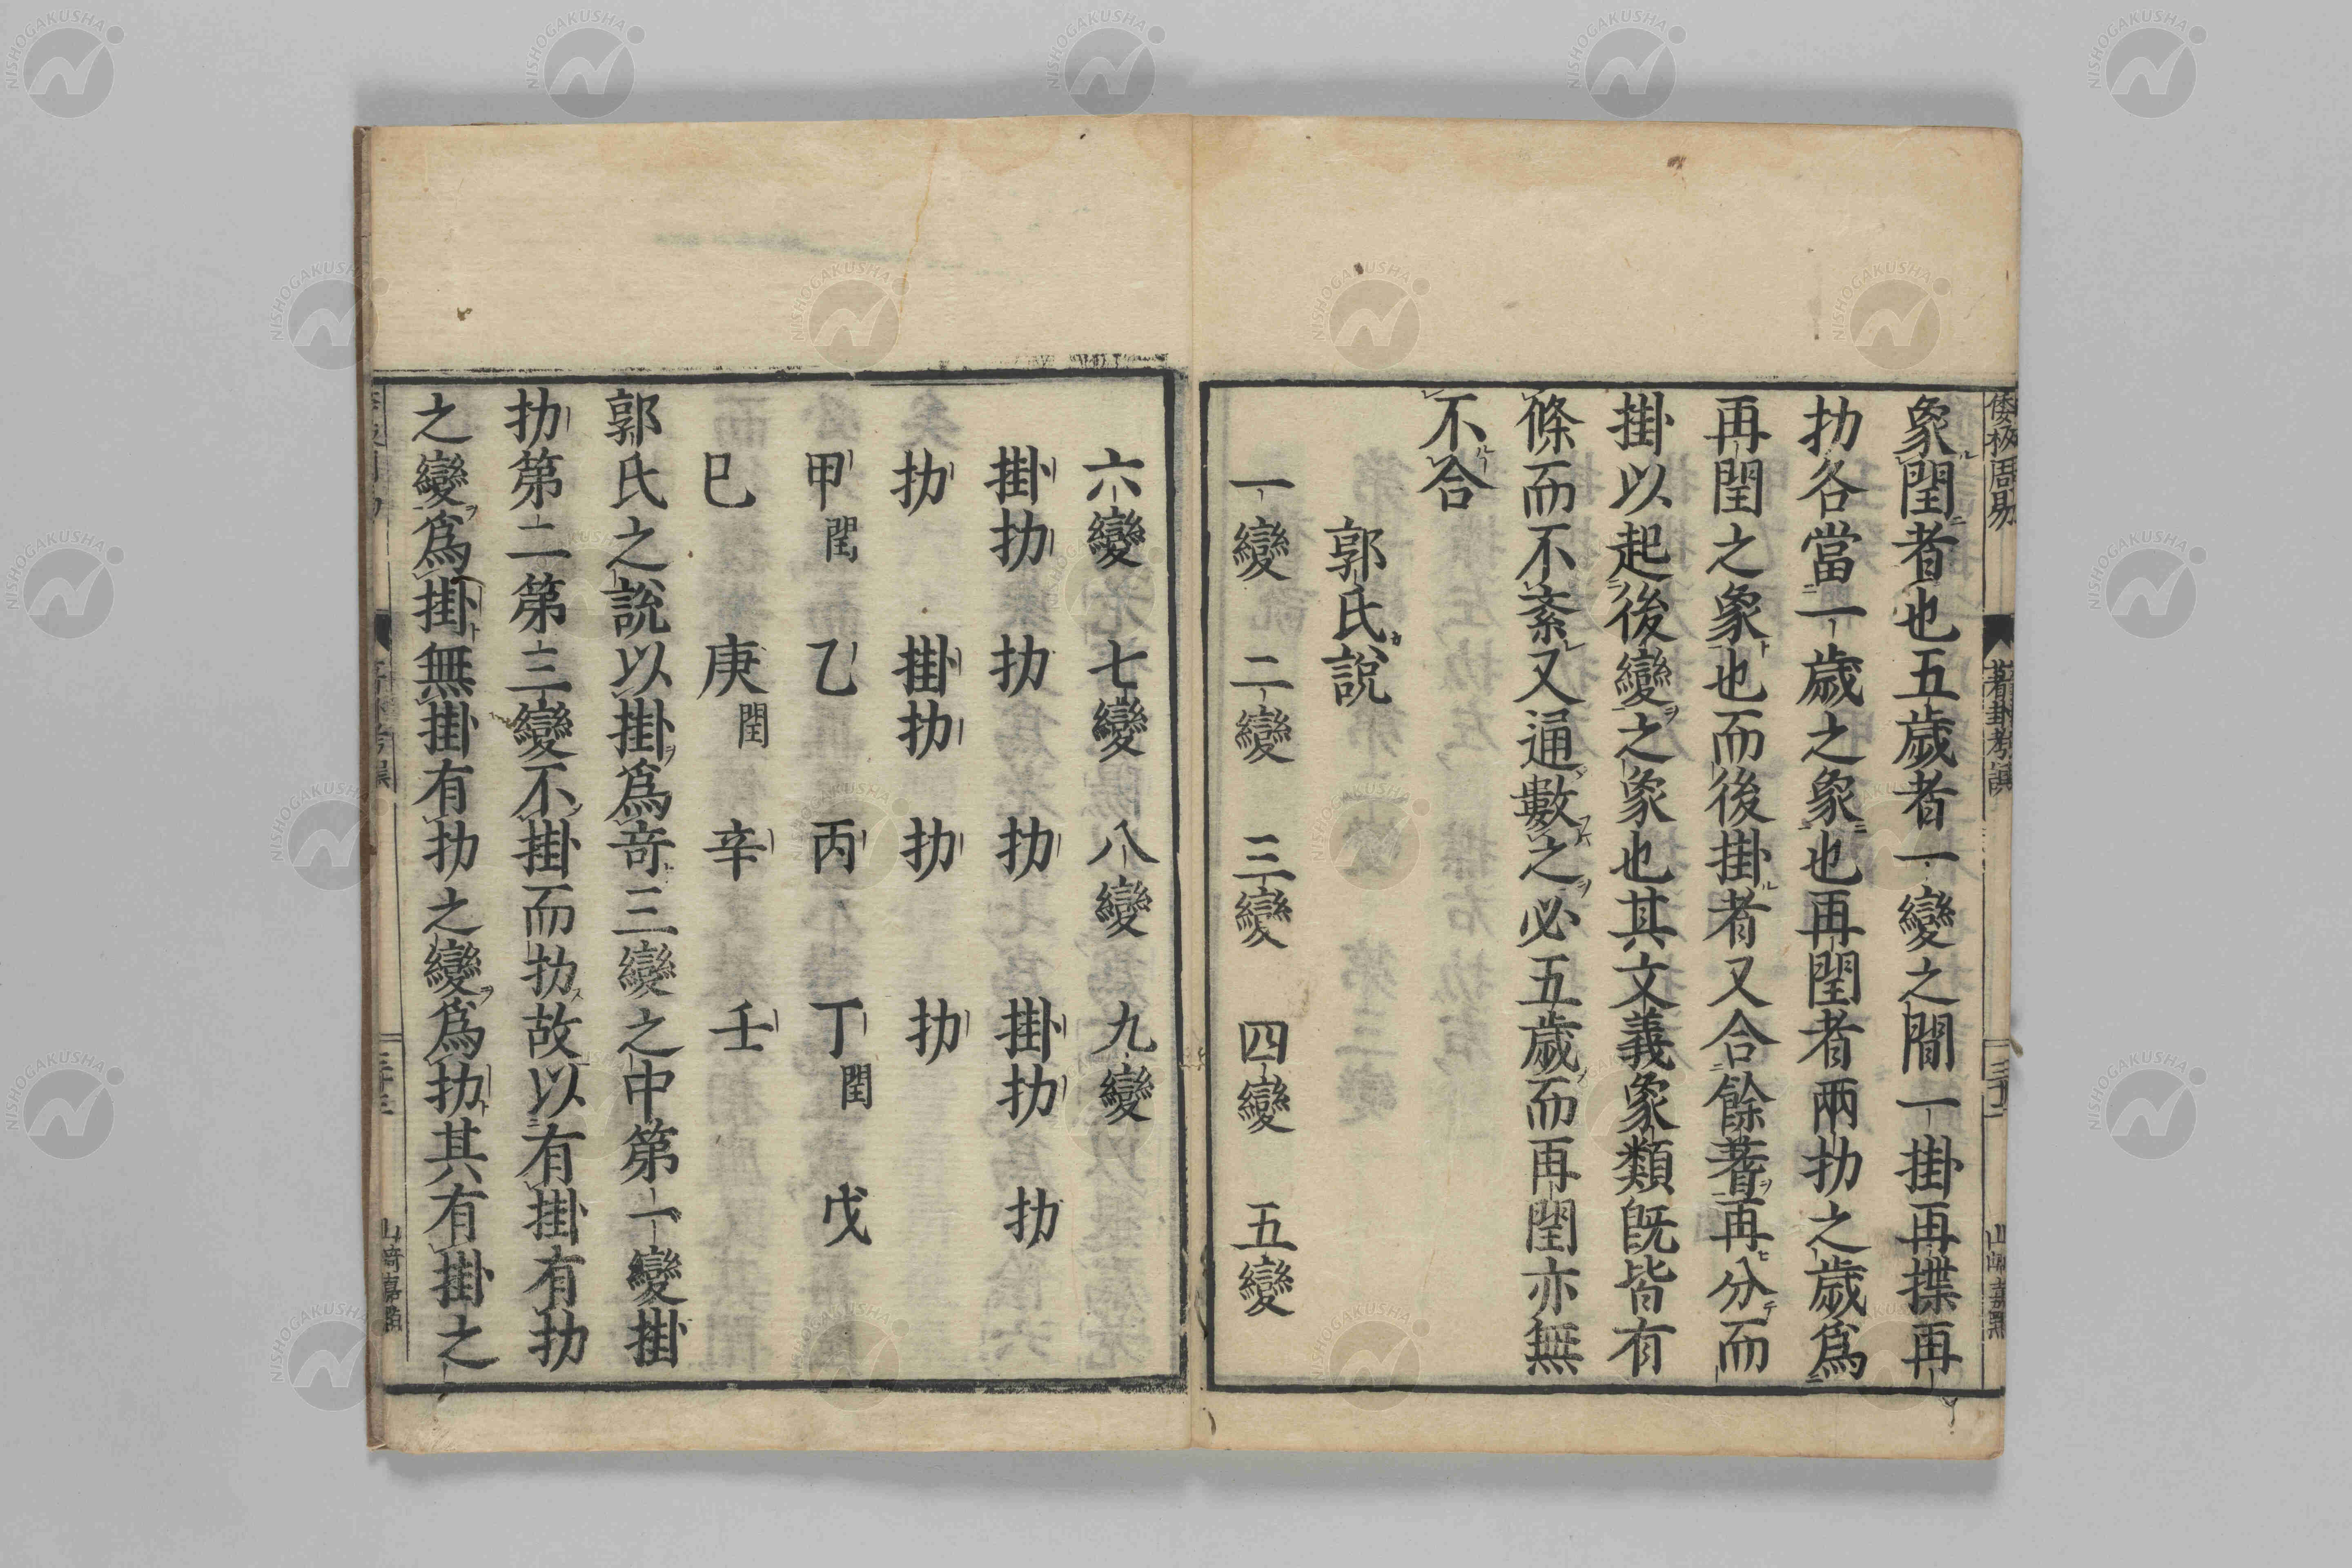 倭板周易
蓍卦考誤
三十二
山崎嘉點
象閏者也五歲者一變之間一掛再揲再
扐各當一歲之象也再閏者兩扐之歲爲
再閏之象也而後掛者又合餘蓍再分而
掛以起後變之象也其文義象類旣皆有
條而不紊又通數之必五歲而再閏亦無
不合
郭氏說
一變 二變 三變 四變 五變
六變 七變 八變 九變
掛扐 扐 扐 掛扐 扐
扐 掛扐 扐 扐
甲閏 乙 丙 丁閏 戊
巳 庚閏 辛 壬
郭氏之說以掛爲奇三變之中第一變掛
扐第二第三變不掛而扐故以有掛有扐
之變爲掛無掛有扐之變爲扐其有掛之
山崎嘉點
NISHOGAKUSHA